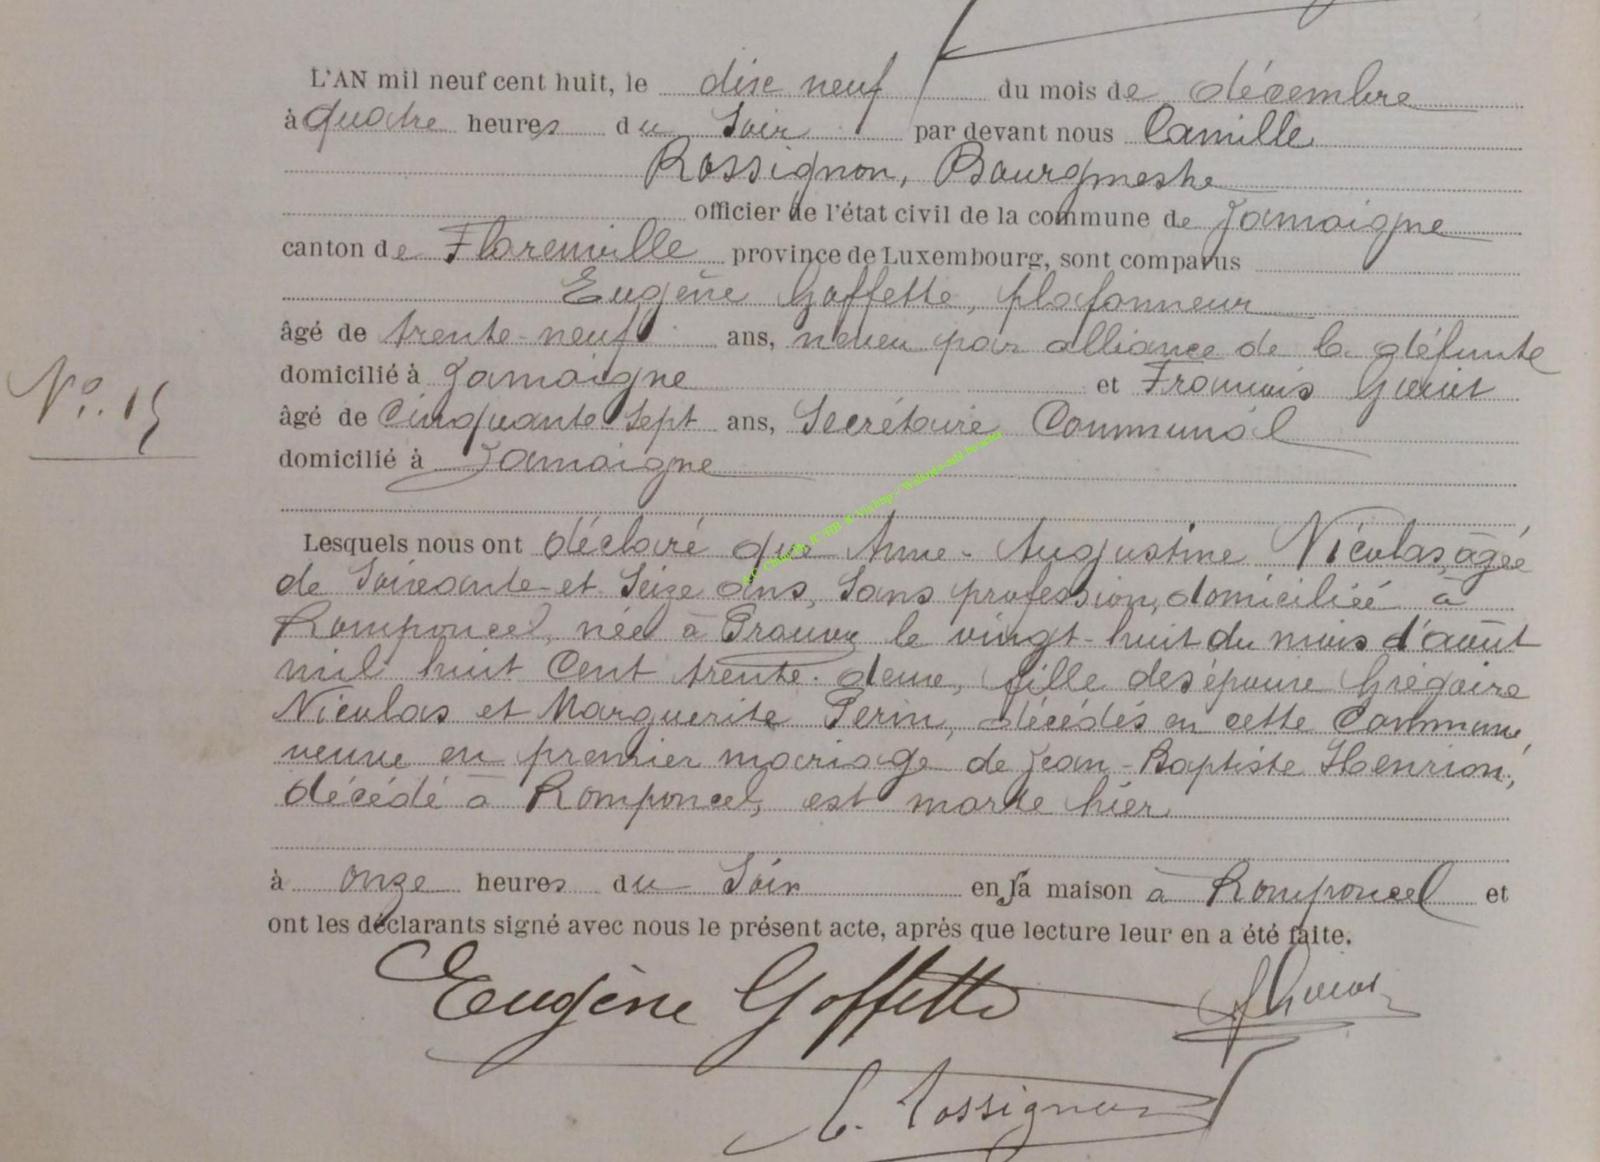 L'AN mil neuf cent huit, le dix neuf du mois de décembre
à quatre heures du Soir par devant nous Camille
Rossignon, Bourgmestre
officier de l'état civil de la commune de Jamoigne
canton de Florenville province de Luxembourg, sont comparus
Eugène Goffette, plafonneur
âgé de trente-neuf ans, neveu par alliance de la défunte
domicilié à Jamoigne et François
N°. 15
âgé de Cinquante Sept ans, Secrétaire Communal
domicilié à Jamoigne
Lesquels nous ont déclaré que Anne-Augustine Nicolas, âgée
de Soixante-et Seize ans, Sans profession, domiciliée à
Romponcel, née à le vingt-huit du mois d'août
mil huit Cent trente-deux, fille des époux Grégoire
Nicolas et Marguerite Perin, décédés en cette Commune,
veuve en premier mariage de Jean-Baptiste Henrion,
décédé à Romponcel, est morte hier
à onze heures du Soir en sa maison à Romponcel et
ont les déclarants signé avec nous le présent acte, après que lecture leur en a été faite.
Eugène Goffette
C. Rossignon